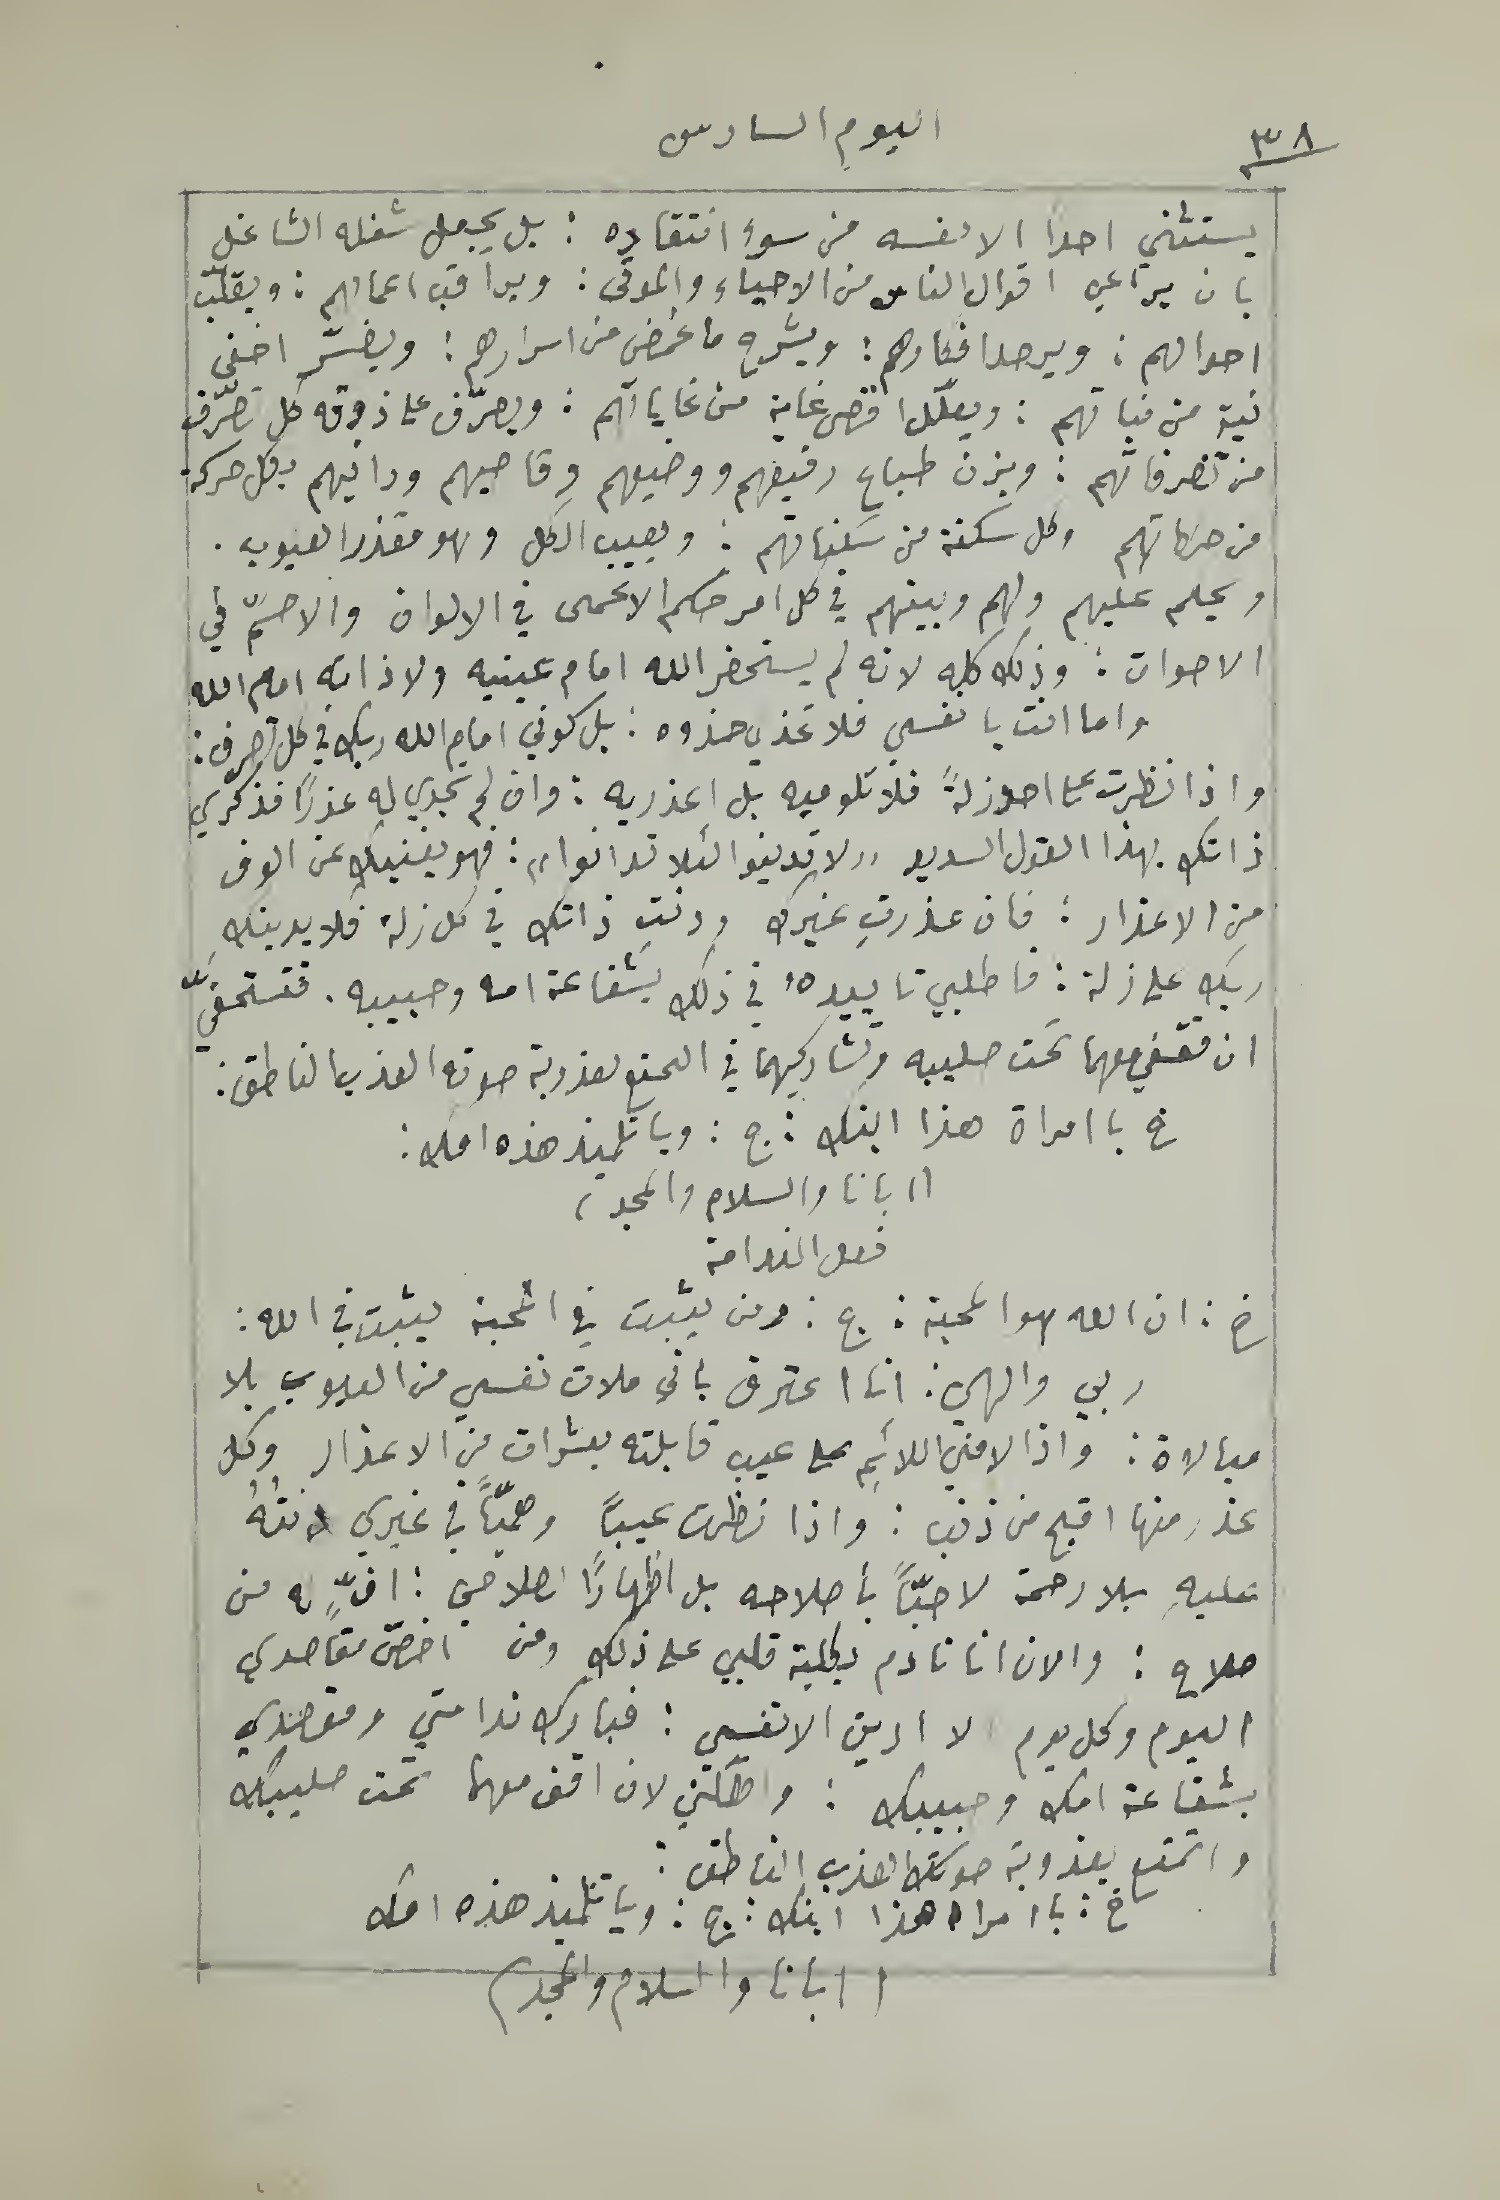 ٣٨
اليوم السادس
يستثني احدا الا نفسه من سوء انتقاده : بل يجعل شغله الشاغل
بان يراعي اقوال الناس من الاحياء والموتى : ويراقب اعمالهم : ويقلّب
احوالهم : ويرصد افكارهم : ويشرح ما غمض من اسرارهم : ويفسّر اخفى
نية من نياتهم : ويعلّل اقصى غاية من غاياتهم : ويصرّف على ذوقه كل تصرّف
من تصرفاتهم : ويزن طباع رفيعهم ووضيعهم وقاصيهم ودانيهم بكل حركة
من حركاتهم وكل سكنة من سكناتهم : ويعيب الكل وهو مقذر العيوب .
ويحكم عليهم ولهم وبينهم في كل امر حكم الاعمى في الالوان والاصمّ في
الاصوات : وذلك كله لانه لم يستحضر الله امام عينيه ولا ذاته امام الله
واما انت يا نفسي فلا تحذي حذوه : بل كوني امام الله ربك في كل تصرف :
واذا نظرت على احد زلةً فلا تلوميه بل اعذريه : وان لم تجدي له عذرًا فذكّري
ذاتك بهذا القول السديد ,, لا تدينوا لئلا تدانوا ,, : فهو يغنيك عن الوف
من الاعذار : فان عذرتِ غيرك ودنتِ ذاتك في كل زلة فلا يدينكِ
ربك على زلة : فاطلبي تاييده في ذلك بشفاعة امه وحبيبه . فتستحقّي
ان تقفي معهما تحت صليبه وتشاركيهما في التمتع بعذوبة صوته العذب الناطق :
خ يا امراة هذا ابنك : ج : ويا تلميذ هذه امك :
(ابانا والسلام والمجد)
فعل الندامة
خ : ان الله هو المحبة : ج : ومن يثبت في المحبة يثبت في الله :
ربي والهي : انا اعترف باني ملات نفسي من العيوب بلا
مبالاة : واذا لامني اللائم على عيب قابلته بعشرات من الاعذار وكل
عذر منها اقبح من ذنب : واذا نظرت عيبًا وهميًّا في غيري دنتُهُ
عليهِ بلا رحمة لا حبًّا باصلاحه بل اظهارًا لصلاحي : افٍّ له من
صلاح : والان انا نادم بكلية قلبي على ذلك ومن اخصّ مقاصدي
اليوم وكل يوم الا ادين الا نفسي : فبارك ندامتي ومقصدي
بشفاعة امك وحبيبك : واهّلني لان اقف معهما تحت صليبك
واتمتع بعذوبة صوتك العذب الناطق :
خ : يا امراة هذا ابنك : ج : ويا تلميذ هذه امك
(ابانا والسلام والمجد)